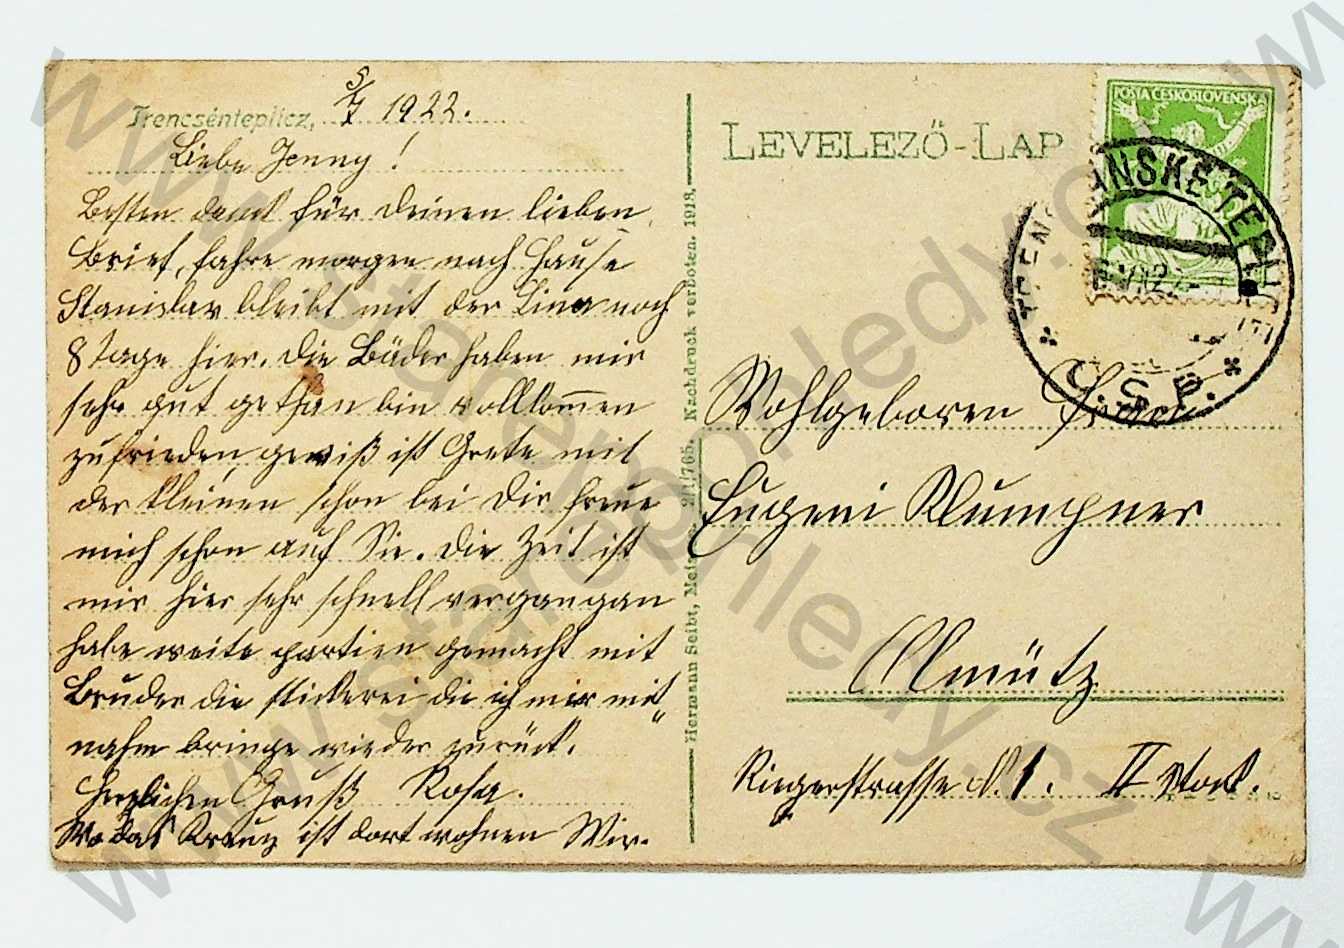 Trencsénteplicz, 5/7 1922.
Liebe Jenny!
Besten dank für deinen lieben
Brief, fahre morgen nach Hause
Stanislav bleibt mit der Lina noch
8 Tage hier. die Bäder haben mir
sehr gut gethan bin vollkom̄en
zufrieden, gewiß ist Grete mit
der kleinen schon bei Dir freue
mich schon auf Sie. die Zeit ist
mir hier sehr schnell vergangan
habe weite partien gemacht mit
Bruder die stickerei die ich mir mit
nahm bringe wieder zurück.
Herzlichen Gruß Rosa.
Wo das Kreuz ist dort wohnen Wir.
Hermann Seibt, Nachdruck verboten. 1918.
LEVELEZŐ-LAP
POŠTA ČESKOSLOVENSKÁ
ANSKÉ TEPLICE
Č.S.P.
Wohlgeboren
Eugeni Klumpner
Olmütz
Riegerstrasse N. 1. II Stock.
www.starepohledy.cz
www.starepohledy.cz